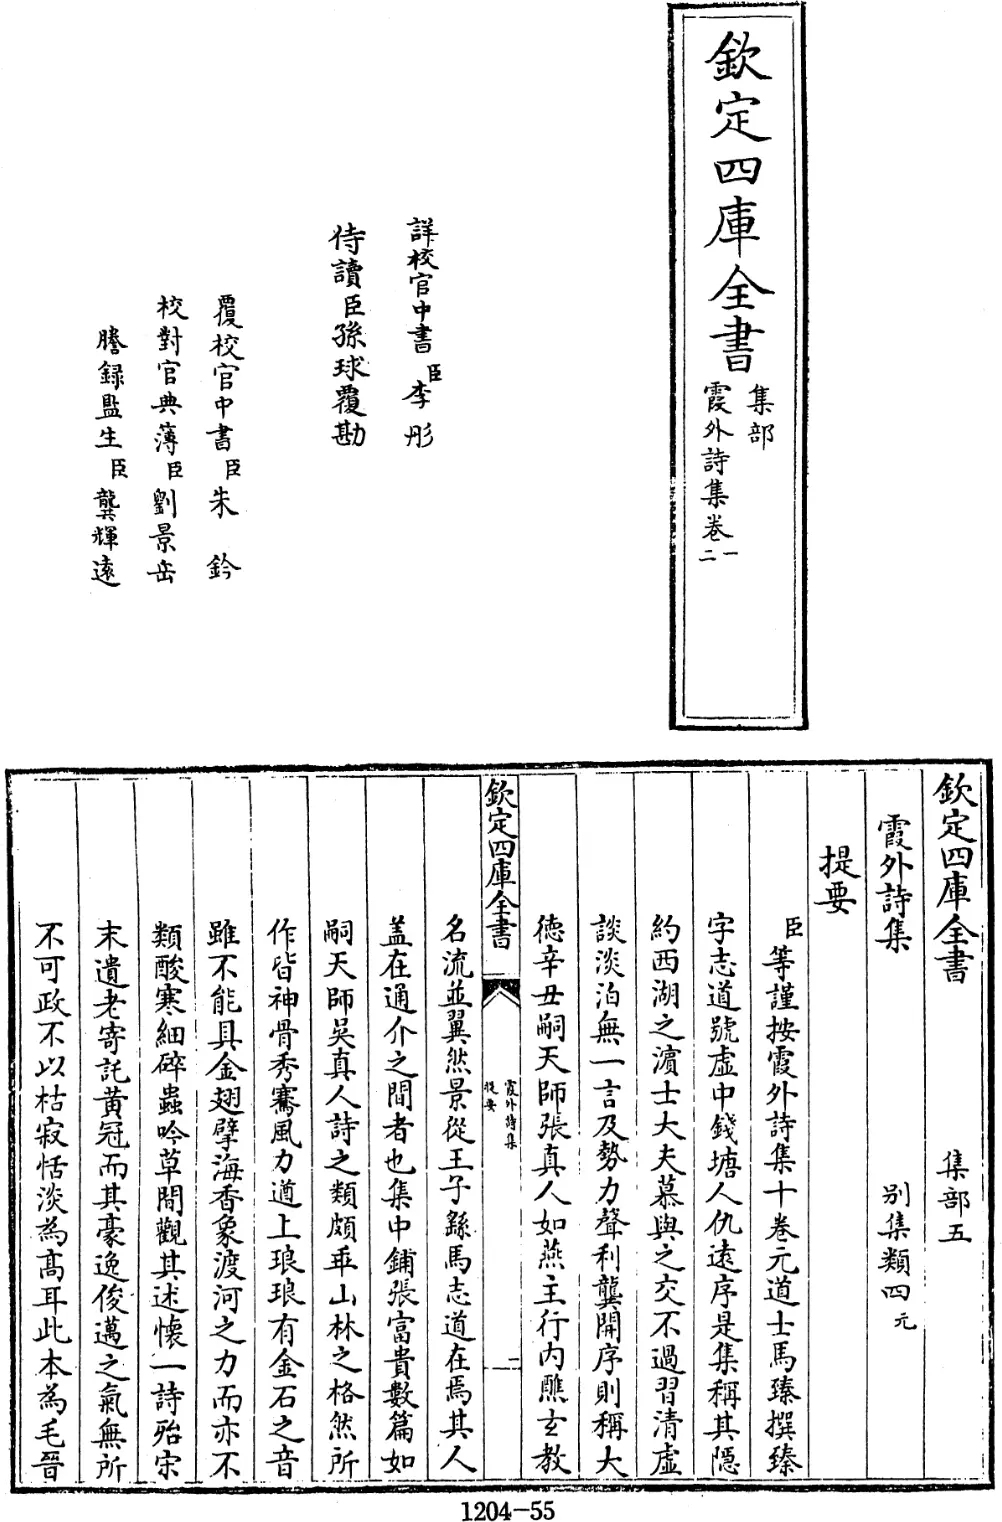 欽定四庫全書
集部
霞外詩集卷一
二
詳校官中書臣李彤
侍讀臣孫球覆勘
覆校官中書臣朱鈐
校對官典簿臣劉景岳
謄錄監生臣龔輝遠
欽定四庫全書 集部五
霞外詩集 别集類四元
提要
臣等謹按霞外詩集十卷元道士馬臻撰臻
字志道號虛中錢塘人仇遠序是集稱其隱
約西湖之濱士大夫慕與之交不過習清虛
談淡泊無一言及勢力聲利龔開序則稱大
德辛丑嗣天師張真人如燕主行内醮玄教
欽定四庫全書
霞外詩集
提要
一
名流並翼然景從王子繇馬志道在焉其人
盖在通介之間者也集中鋪張富貴數篇如
嗣天師吳真人詩之類頗乖山林之格然所
作皆神骨秀騫風力遒上琅琅有金石之音
雖不能具金翅擘海香象渡河之力而亦不
類酸寒細碎蟲吟草間觀其述懷一詩殆宋
末遺老寄託黄冠而其豪逸俊邁之氣無所
不可政不以枯寂恬淡為髙耳此本為毛晉
1204-55